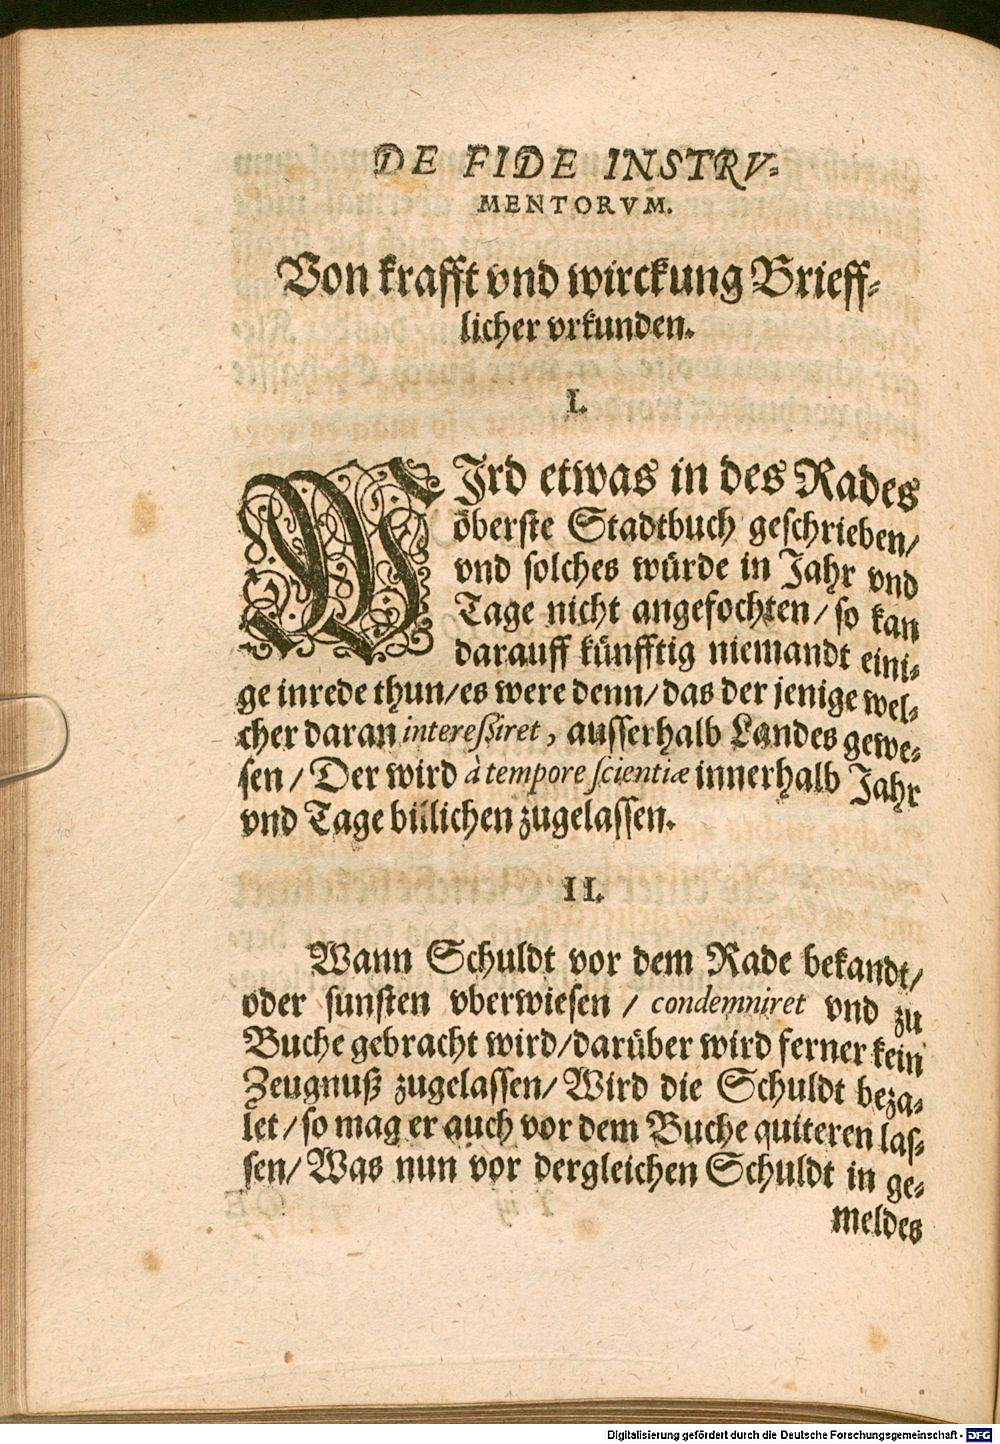 DE FIDE INSTRV-
MENTORVM.
Von krafft vnd wirckung Brieff-
licher vrkunden.
I.
WIrd etwas in des Rades
öberste Stadtbuch geschrieben/
vnd solches würde in Jahr vnd
Tage nicht angefochten/ so kan
darauff künfftig niemandt eini-
ge inrede thun/es were denn/das der jenige wel-
cher daran interessiret, ausserhalb Landes gewe-
sen/ Der wird à tempore scientiæ innerhalb Jahr
vnd Tage billichen zugelassen.
II.
Wann Schuldt vor dem Rade bekandt/
oder sunsten vberwiesen / condemniret vnd zu
Buche gebracht wird/darüber wird ferner kein
Zeugnuß zugelassen/ Wird die Schuldt beza-
let/ so mag er auch vor dem Buche quiteren las-
sen/ Was nun vor dergleichen Schuldt in ge-
meldes
Digitalisierung gefördert durch die Deutsche Forschungsgemeinschaft - DFG